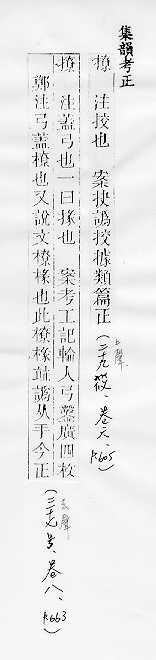 集韻考正
撩 注挍也 案抉譌挍據類篇正(上聲 二十九筱、卷六、p.605)
撩 注蓋弓也一曰掾也 案考工記輪人弓鑿廣四枚
鄭注弓蓋橑也又說文橑椽也此橑椽竝譌从手今正(去聲 三十七号、卷八、p.663)